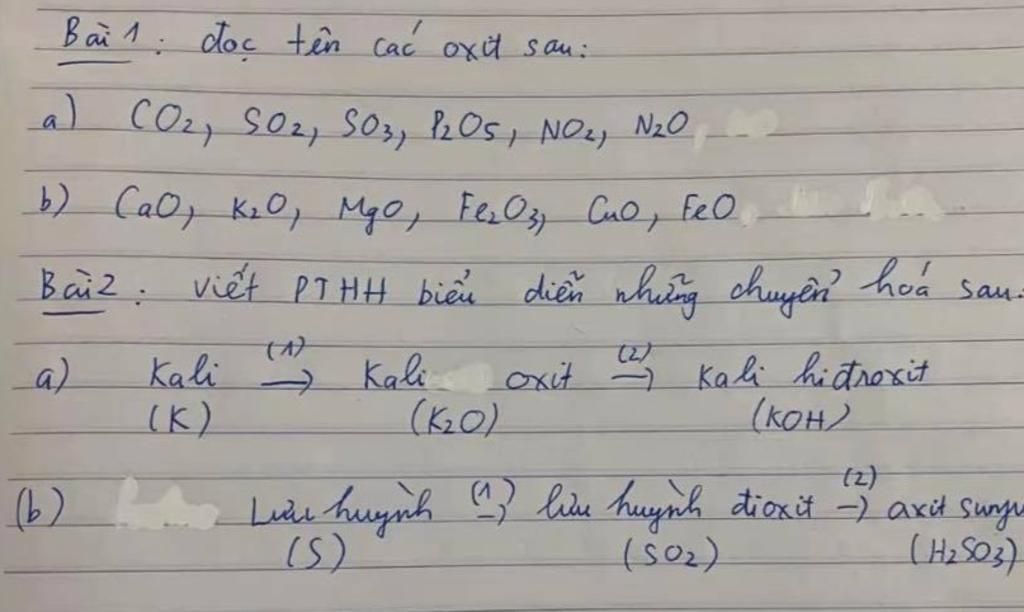 Bài 1: đọc tên các oxit sau:
a) CO2, SO2, SO3, P2O5, NO2, N2O
b) CaO, K2O, MgO, Fe2O3, CuO, FeO
Bài 2: viết PTHH biểu diễn những chuyển hoá sau.
(1) (2)
a) Kali → Kali oxit → Kali hiđroxit
(K) (K2O) (KOH)
(2)
(b) Lưu huỳnh (1)→ lưu huỳnh đioxit → axit sunfu
(S) (SO2) (H2SO3)